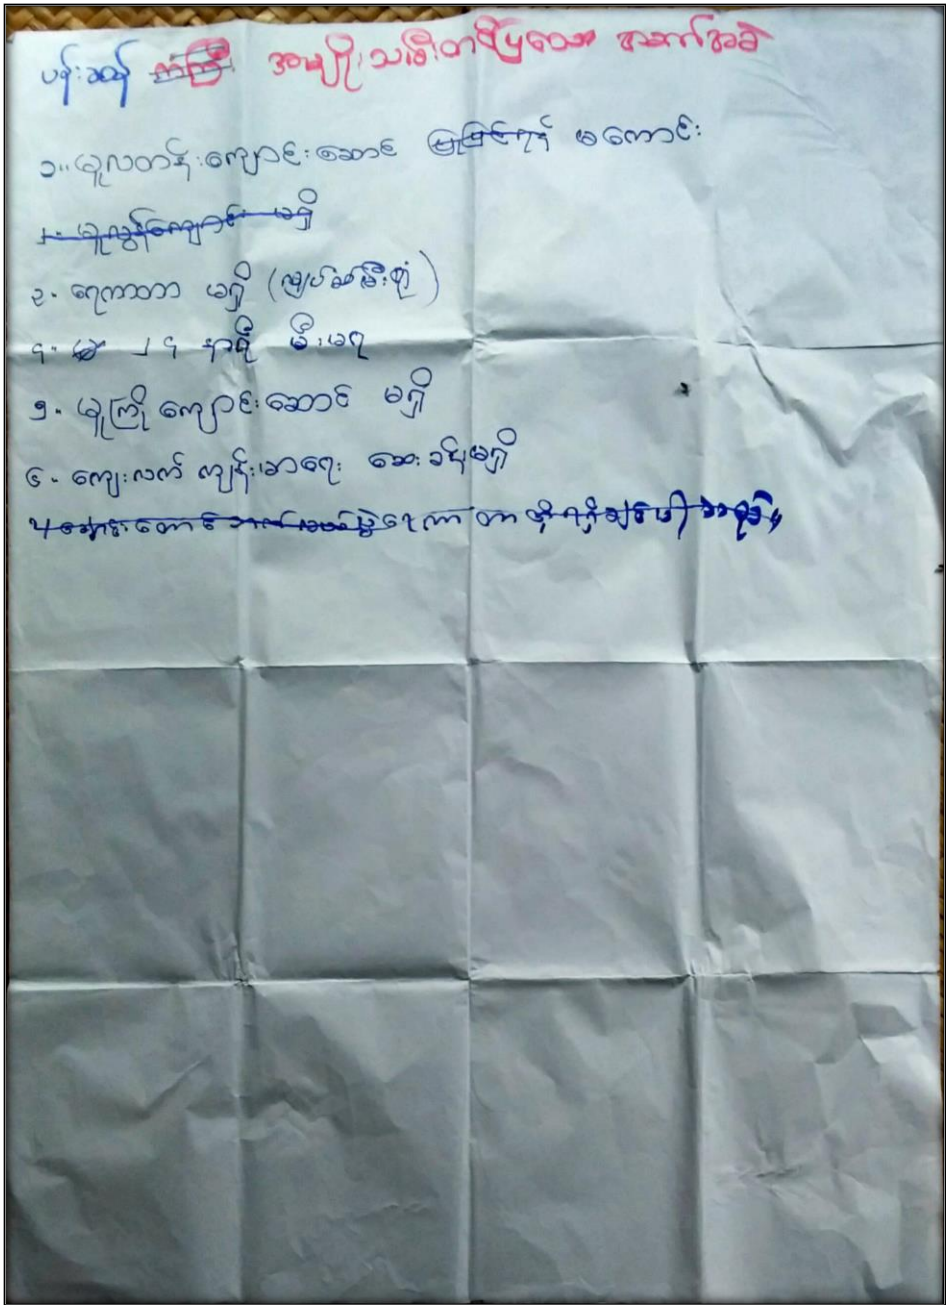 ပန်းဆန် အမျိုးသမီးတင်ပြသော အခက်အခဲ
၁။ မူလတန်းကျောင်းဆောင် ပြုပြင်ရန် မကောင်း
၂။ မူလွန်ကျောင်း မရှိ
၃. ရေကာတာ မရှိ (လျှပ်စစ်မီးစုံ)
၄. ၂၄ နာရီ မီးမရ
၅. မူကြိုကျောင်းဆောင် မရှိ
၆. ကျေးလက် ကျန်းမာရေး ဆေးခန်းမရှိ
ရေကာတာ